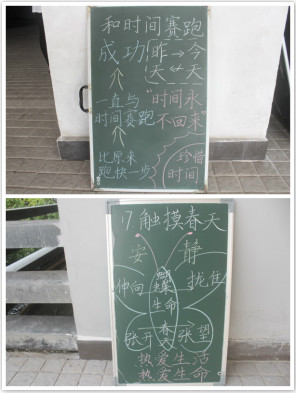 和时间赛跑
成功 昨→今
天↔天
一直与 "时间永
时间赛跑 不回来"
比原来 珍惜
跑快一步 时间
17 触摸春天
安 静
蝶
伸向 拢住
生命
春
张开 天 张望
热爱生活
热爱生命